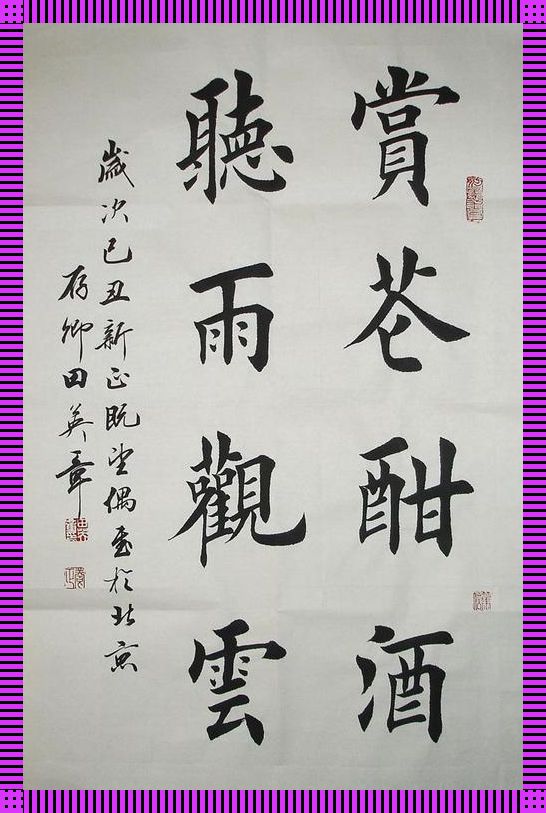 賞花酣酒
聽雨觀雲
歲次己丑新正既望偶書於北京
存卿田英章